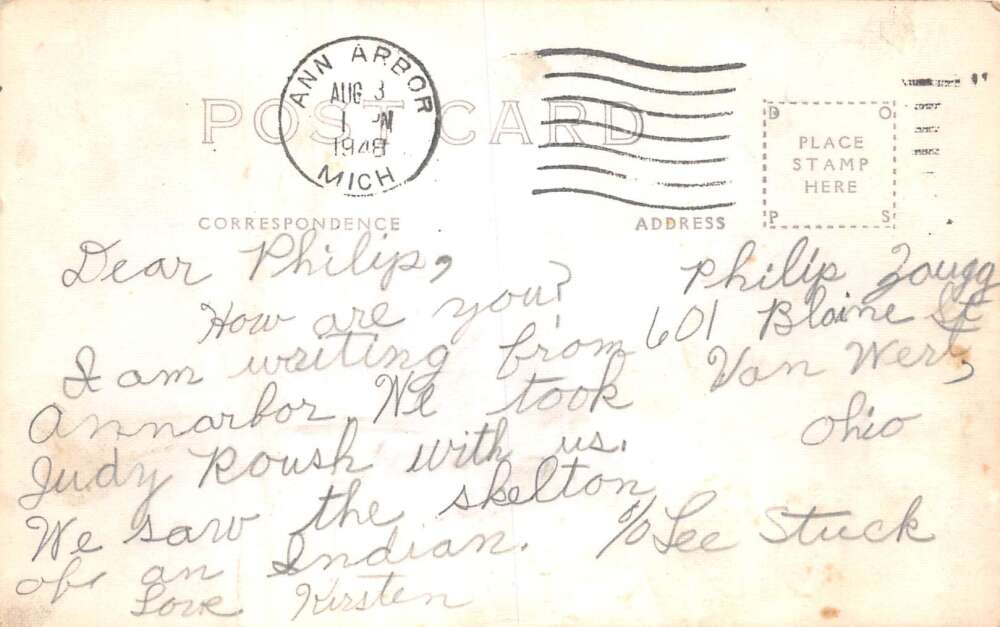 ANN ARBOR
AUG 3
1 PM
1948
MICH
POST CARD
D O
PLACE
STAMP
HERE
P S
CORRESPONDENCE
ADDRESS
Dear Philip,
How are you?
I am writing from
Annarbor. We took
Judy Roush with us.
We saw the skelton
of an Indian.
Love Kirsten
Philip Zougg
601 Blaine St
Van Wert,
Ohio
c/o Lee Stuck